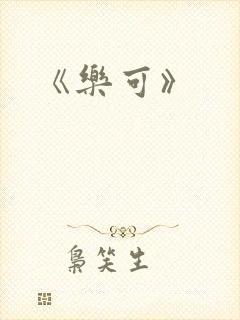 《樂可》
梟笑生